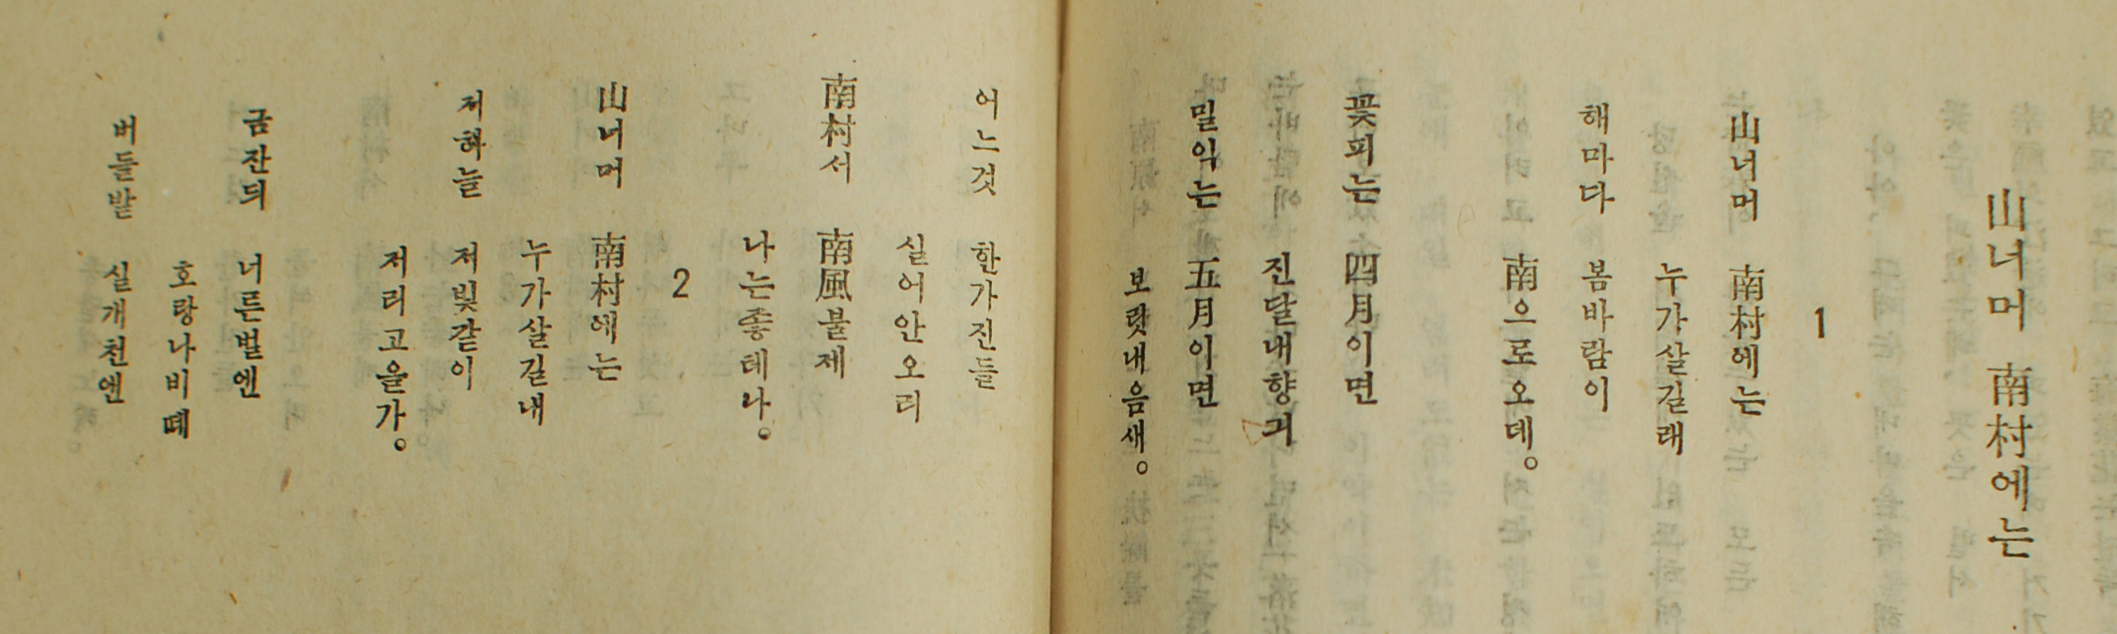 山너머 南村에는
1
山너머 南村에는
누가살길래
해마다 봄바람이
南으로오데。
꽃피는 四月이면
진달내향긔
밀익는 五月이면
보릿내음새。
어느것 한가진들
실어안오리
南村서 南風불제
나는좋테나。
2
山너머 南村에는
누가살길내
저하늘 저빛갈이
저리고을가。
금잔듸 너른벌엔
호랑나비떼
버들밭 실개천엔